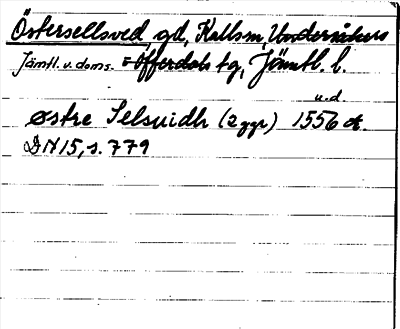 Östersellsved, gd, Kallsm, Undersåkers
Jämtl. v. doms. o Offerdals tg, Jämtl. l.
u.d.
østre Selsvidh (2 ggr) 1556 A.
DN 15, s. 779